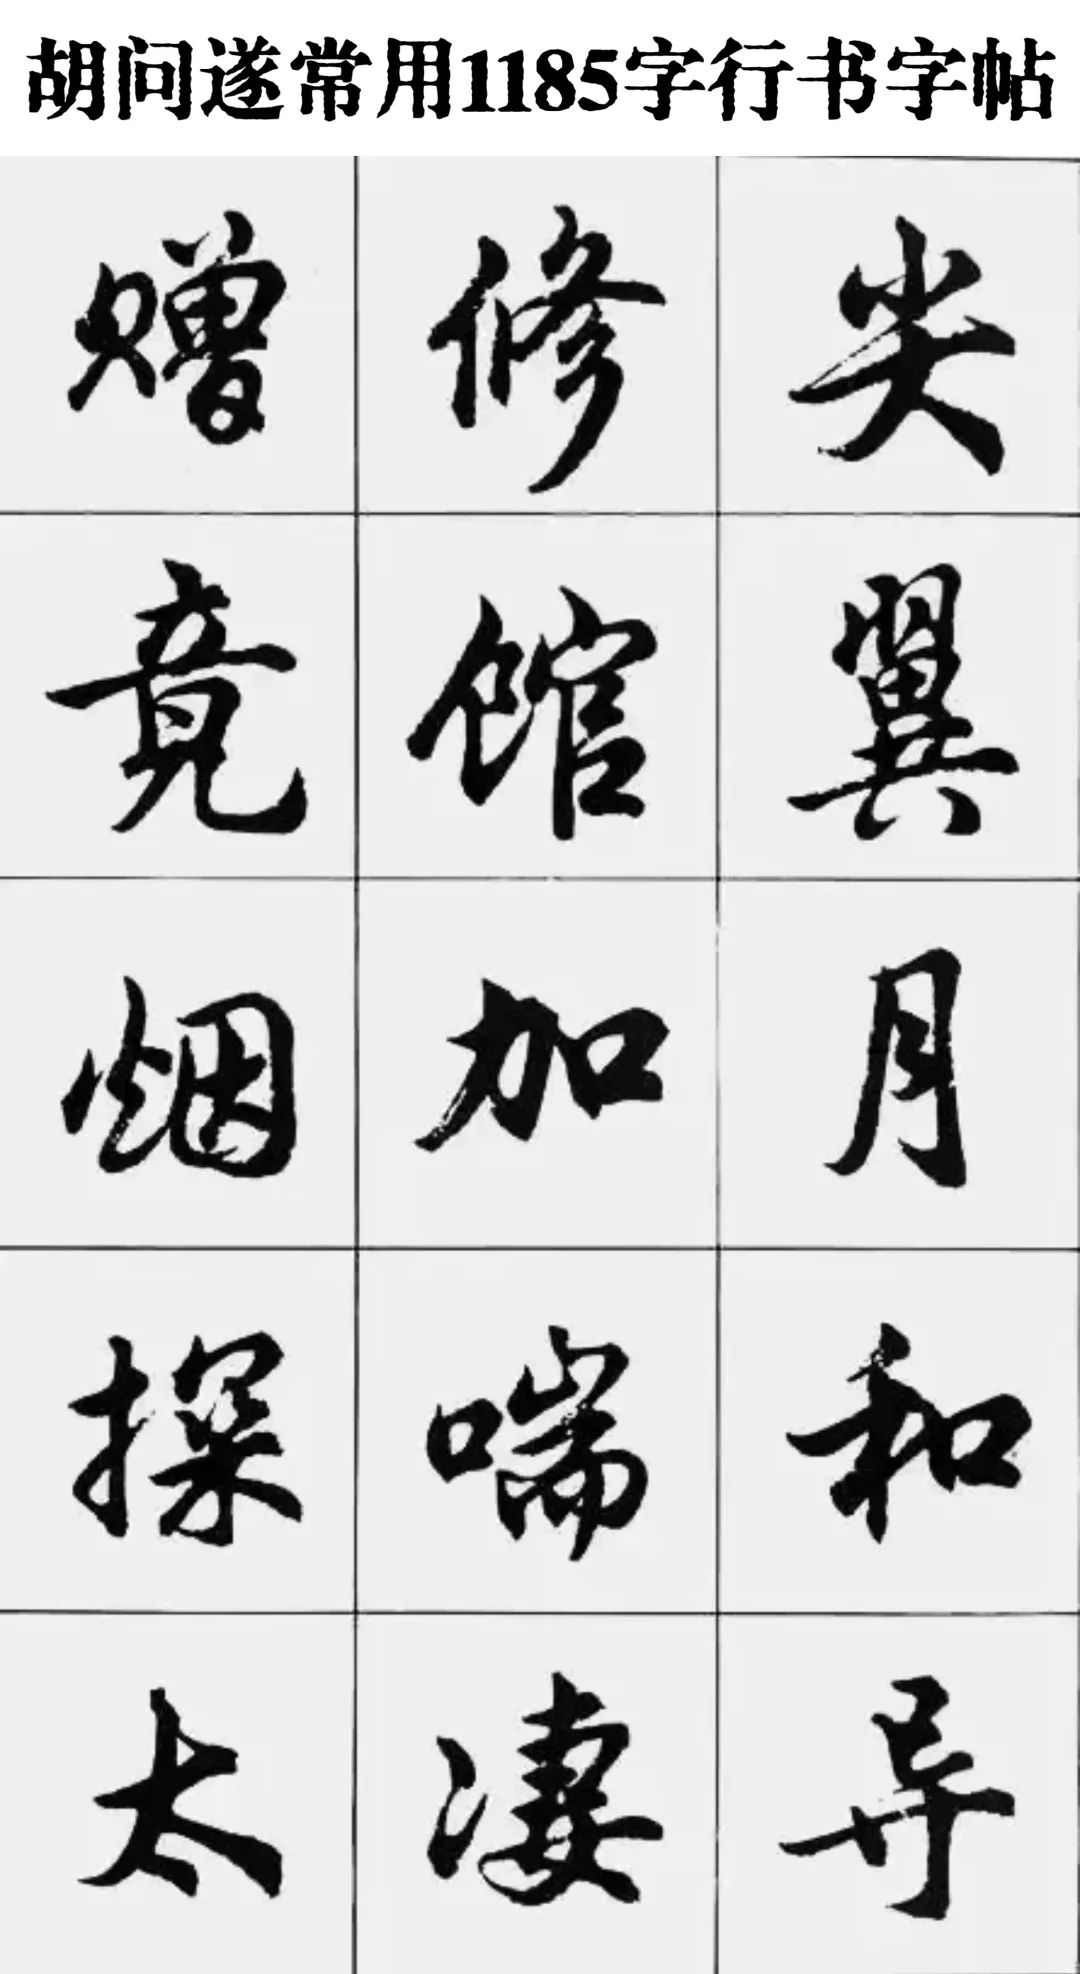 胡问遂常用1185字行书字帖
赠 修 尖
竟 馆 翼
烟 加 月
探 喘 和
太 凄 导